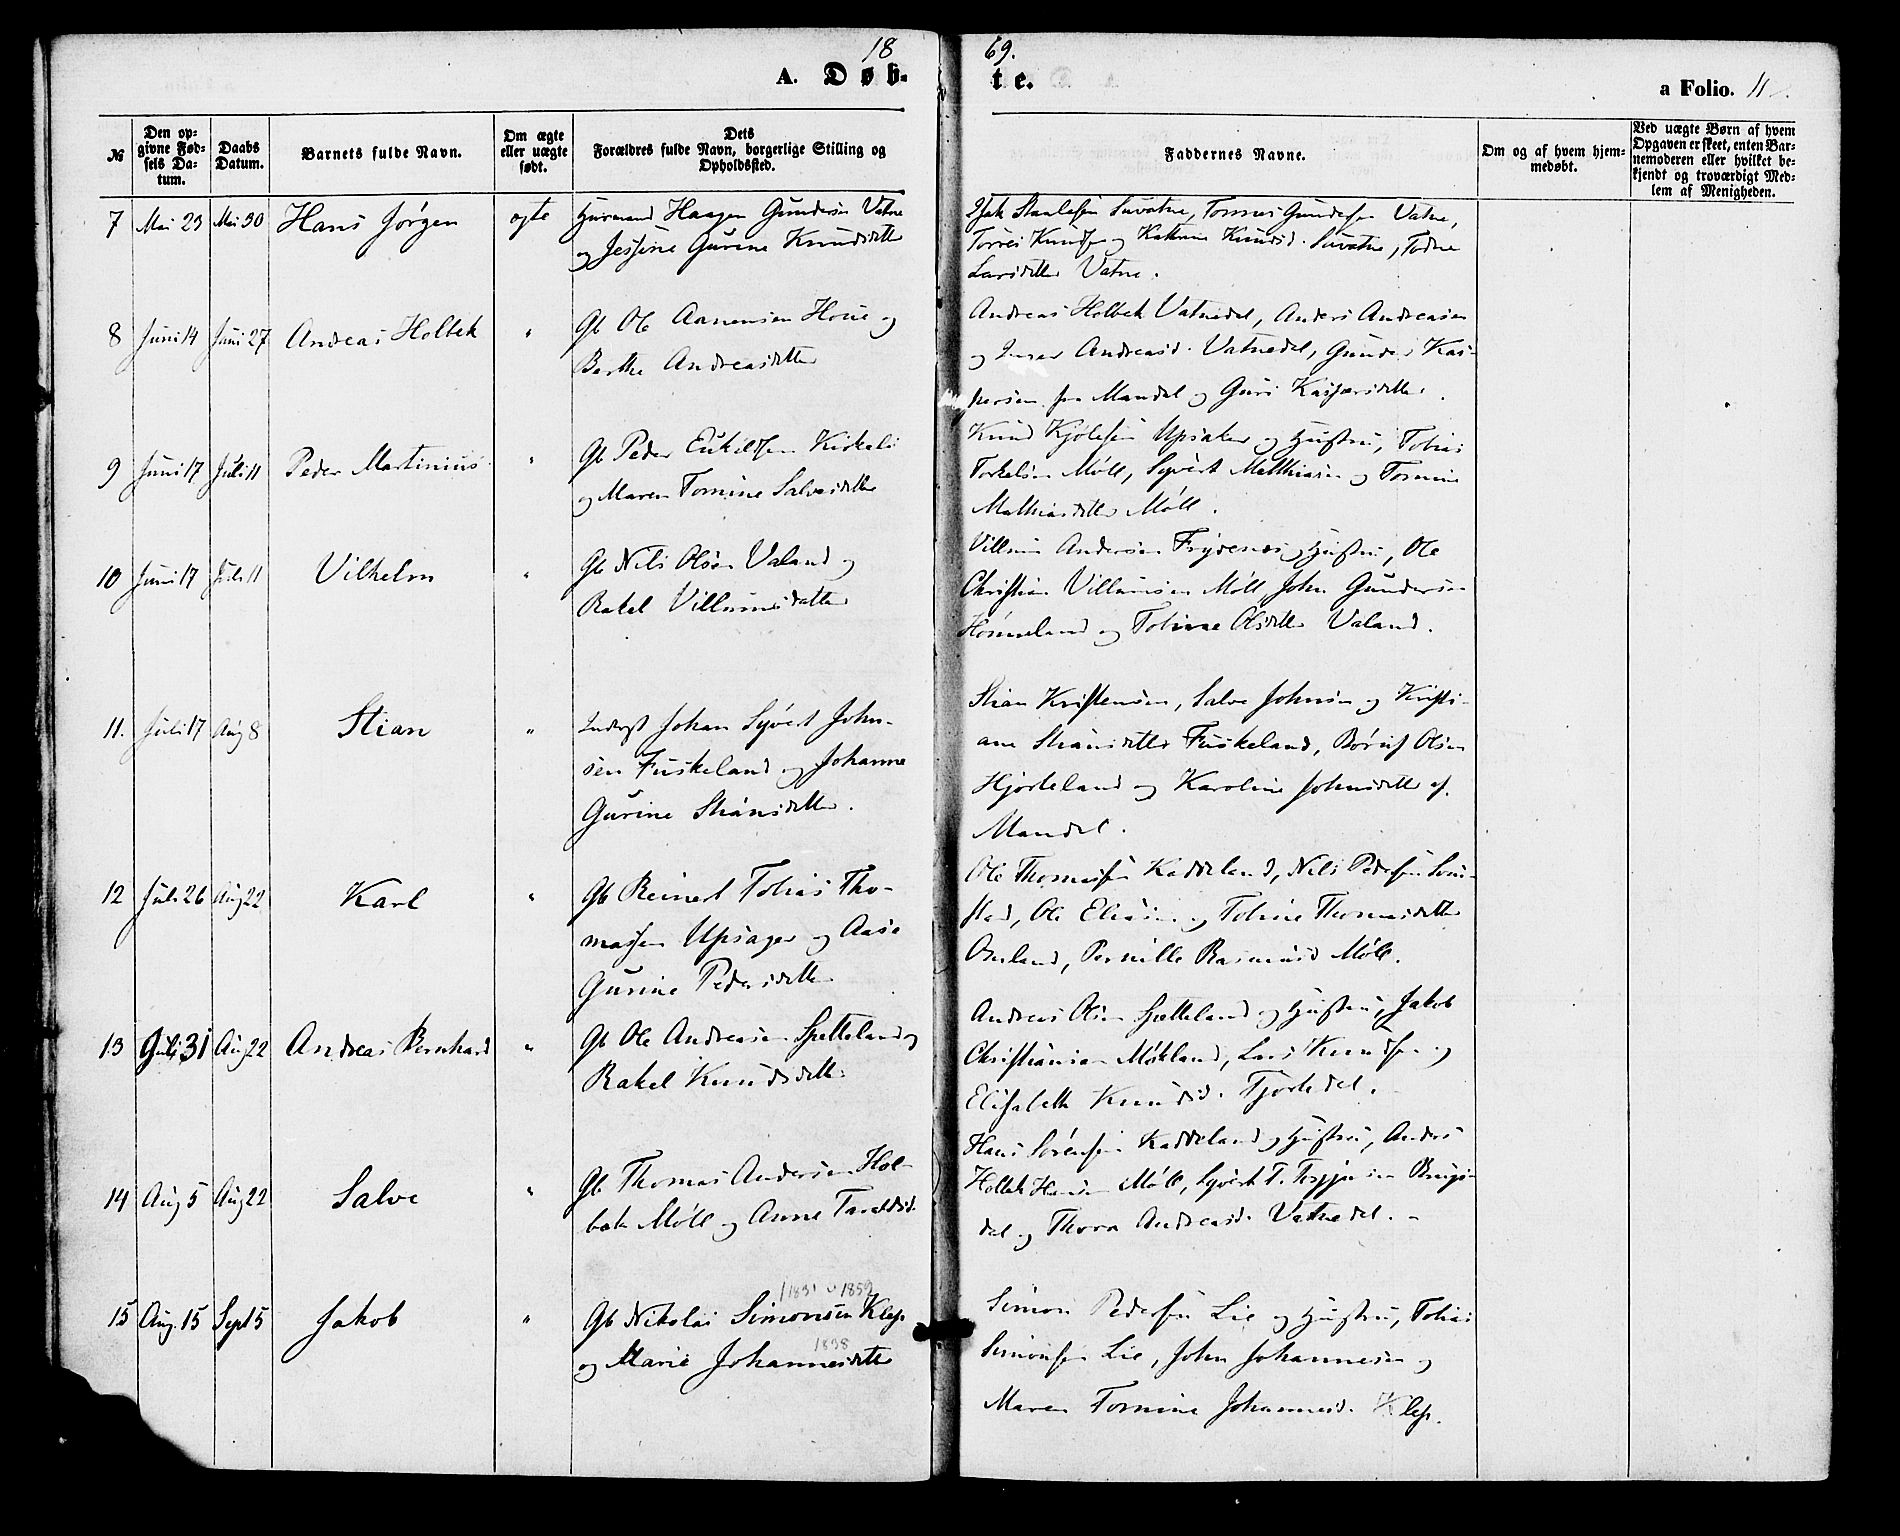 1869.
A. Døbte.
a Folio. 11.
№
Den opgivne Fødsels Datum.
Daabs Datum.
Barnets fulde Navn.
Om ægte eller uægte født.
Dets Forældres fulde Navn, borgerlige Stilling og Opholdssted.
Faddernes Navne.
Om og af hvem hjemmedøbt.
Ved uægte Børn af hvem Opgaven er skeet, enten Barnemoderen eller hvilket bekjendt og troværdigt Medlem af Menigheden.
7 Mai 23 Mai 30 Hans Jørgen ægte
Haagen Gundersen Vatne
og Jessine Gurine Knudsdatter
Staalesen Tønnes Gundersen Vatne,
Knudsen og Knudsd.
Larsdatter Vatne.
8 Juni 14 Juni 27 Andreas Holbek "
Gb Ole Aanensen Houe og
Berthe Andreasdatter
Andreas Holbek Vatnedal, Anders Andreasen
og Andreasd. Vatnedal, Gunder Kas-
persen fra Mandal og Guri Kaspersdatter.
9 Juni 17 Juli 11 Peder Martinius "
Gb Peder Eskildsen
og Maren Tomine Salvesdatter
Knud Upsaker og Hustru, Tobias
Torkelsen Møll, Syvert Matthiasen og Tomine
Mathiasdatter Møll.
10 Juni 17 Juli 11 Vilhelm "
Gb Nils Olsen Valand og
Rakel Villumsdatter
Villum Andersen og Hustru, Ole
Christian Villumsen Møll John Gundersen
og Tobine Olsdatter Valand.
11. Juli 17 Aug 8 Stian "
Johan Syvert John-
sen Fuskeland og Johanne
Gurine Stiansdatter.
Stian Kristensen, Salve Johnsen og Kristi-
ane Stiansdatter Fuskeland, Olsen
Hjorteland og Karoline Johnsdatter af
Mandal.
12 Juli 26 Aug 22 Karl "
Gb Reinert Tobias Tho-
massen Upsager og Aase
Gurine Pedersdatter
Ole Thomassen Kaddeland, Nils Pedersen
Ole Eliasen og Tobine Thomasdatter
Pernille Rasmusd Møll.
13 Juli 31 Aug 22 Andreas Bernhard "
Gb Ole Andreasen Spetteland og
Rakel Knudsdatter
Andreas Olsen og Hustru, Jakob
Christiansen Møkland, Lars Knudsen og
Elisabeth Knudsd.
14 Aug 5 Aug 22 Salve "
Gb Thomas Andersen Hol-
bek Møll og Anne Taraldsd.
Hans Sørensen Kaddeland og Hustru, Anders
Holbek Hansen Møll, Syvert T.
dal og Thora Andreasd. Vatnedal.
1831 1859
15 Aug. 15 Sept 5 Jakob "
Gb Nikolai Simonsen Klep
1838
og Marie Johannesdatter
Simon Pedersen Lie og Hustru, Tobias
Simonsen Lie, John Johannesen og
Maren Tomine Johannesd. Klep.